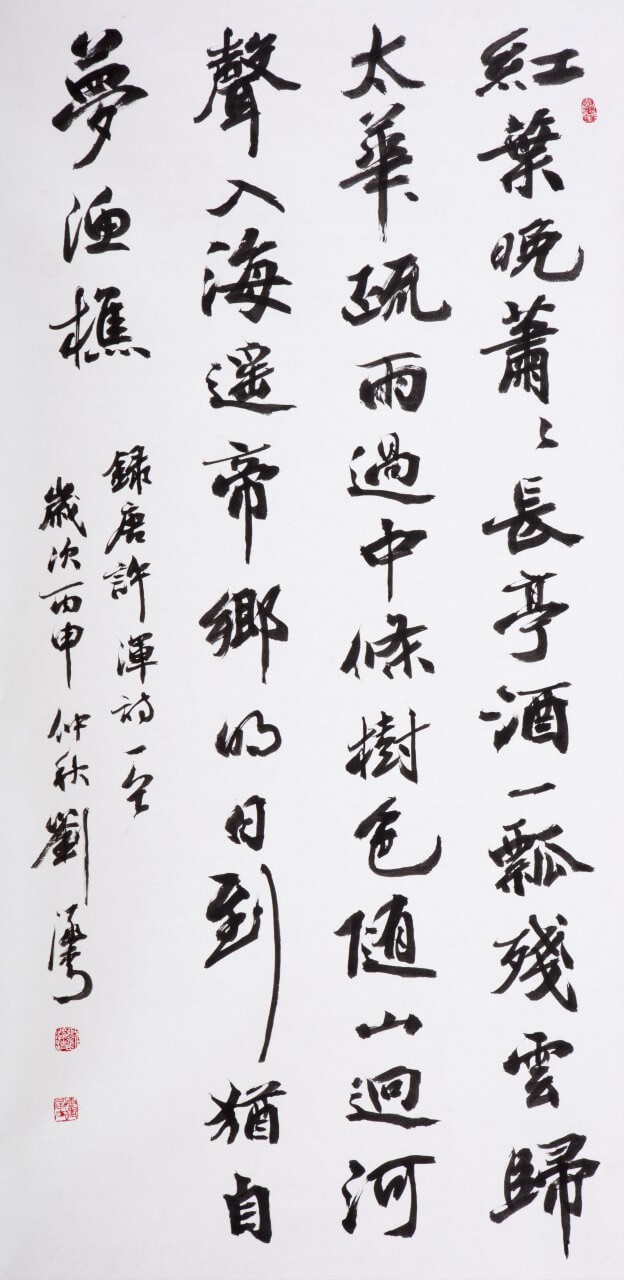 紅葉晚蕭〻長亭酒一瓢殘雲歸
太華疏雨過中條樹色随山迥河
聲入海遥帝鄉明日到猶自
夢漁樵
錄唐許渾詩一首
歲次丙申仲秋劉